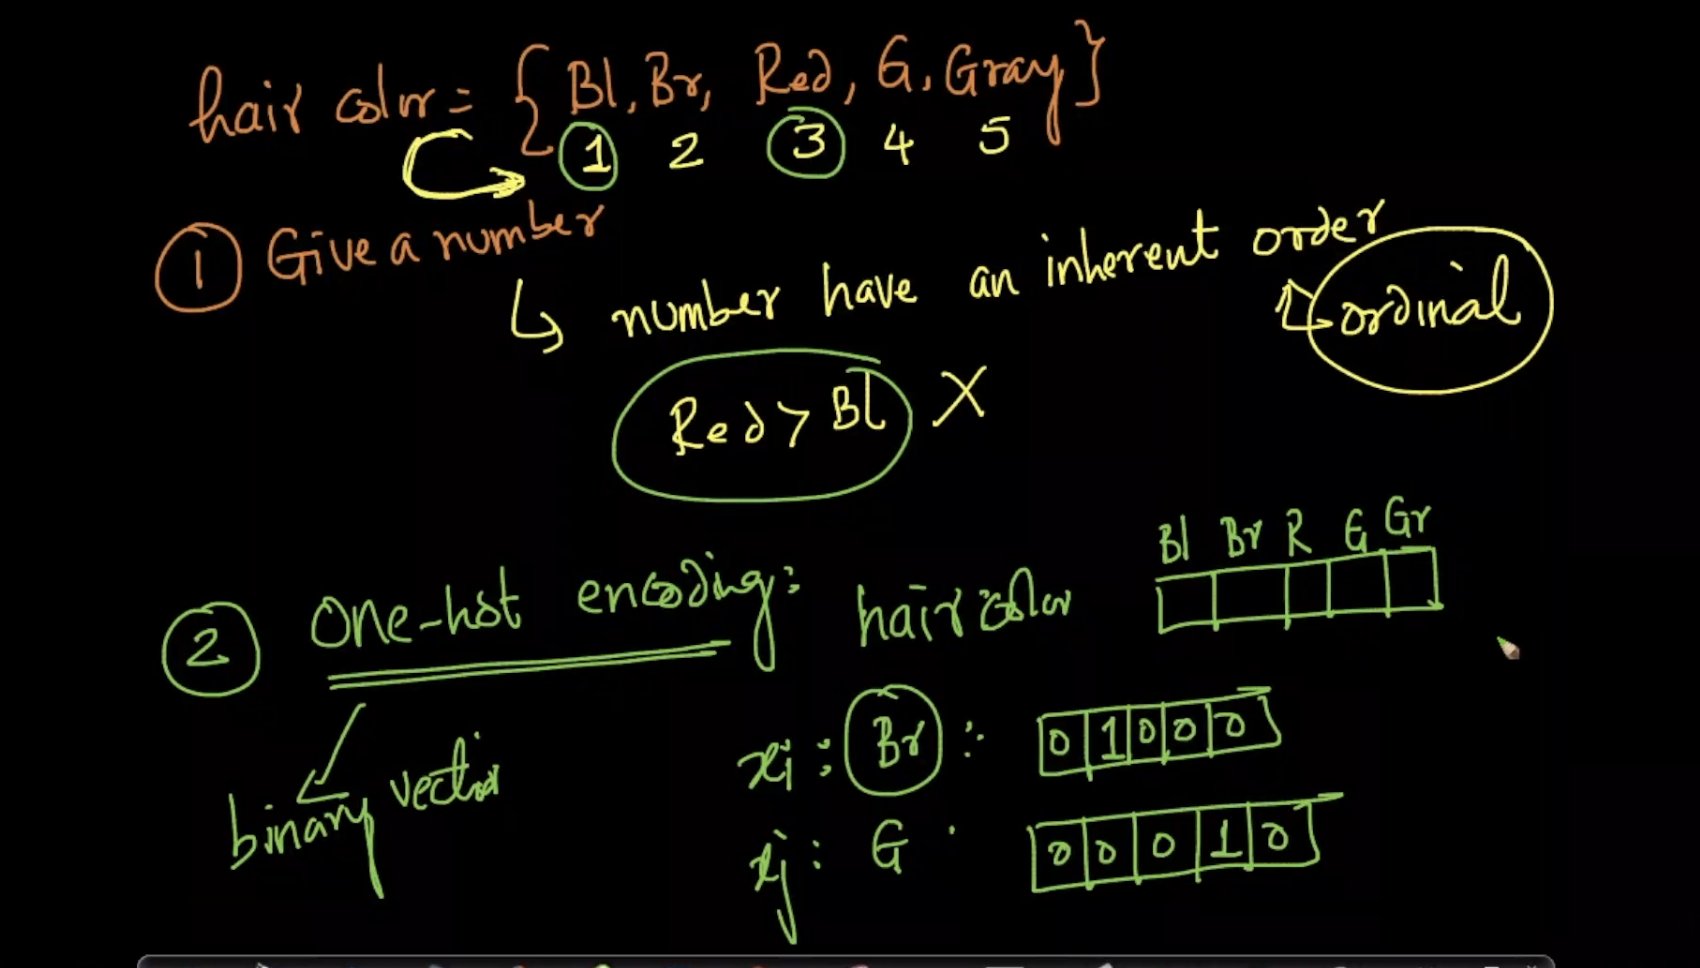 hair color = {Bl, Br, Red, G, Gray}
1 2 3 4 5
① Give a number
↳ number have an inherent order
ordinal
Red > Bl X
Bl Br R G Gr
② One-hot encoding: hair color
binary vector
xi : Br : 0 1 0 0 0
xj : G 0 0 0 1 0